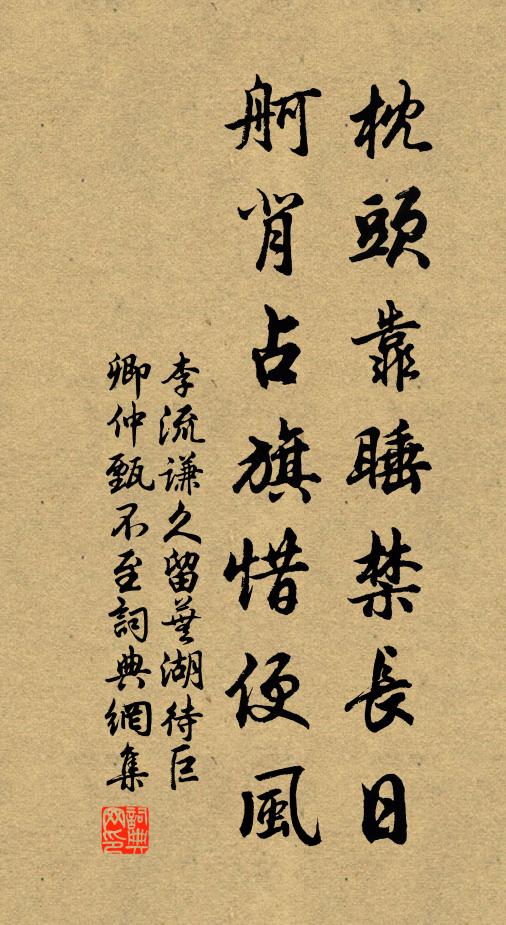 枕頭靠睡禁長日
舸背占旗惜便風
李流謙久留蕪湖待巨
卿仲甄不至詞典網集
詞典网印